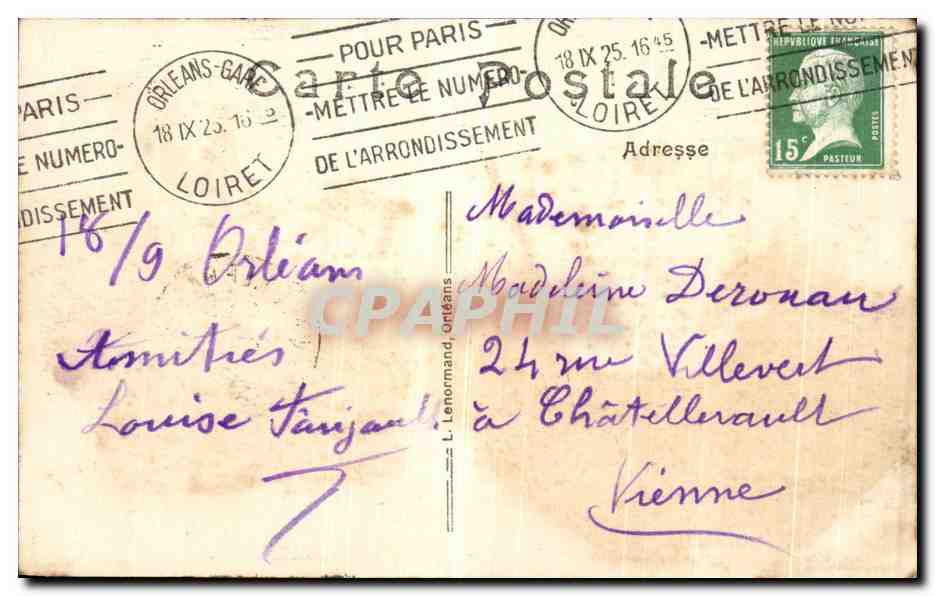 Carte Postale
POUR PARIS
-METTRE LE NUMERO-
DE L'ARRONDISSEMENT
ORLEANS-GARE
18 IX 25. 16 45
LOIRET
PARIS
E NUMERO-
DISSEMENT
OR
18 IX 25. 16 45
LOIRET
-METTRE LE NU
DE L'ARRONDISSEMENT
REPUBLIQUE FRANÇAISE
POSTES
15c
PASTEUR
Adresse
18/9 Orléans
Amitiés
Louise
L. Lenormand, Orléans
CPAPHIL
Mademoiselle
Madeleine Deronau
24 rue Villevert
à Châtellerault
Vienne